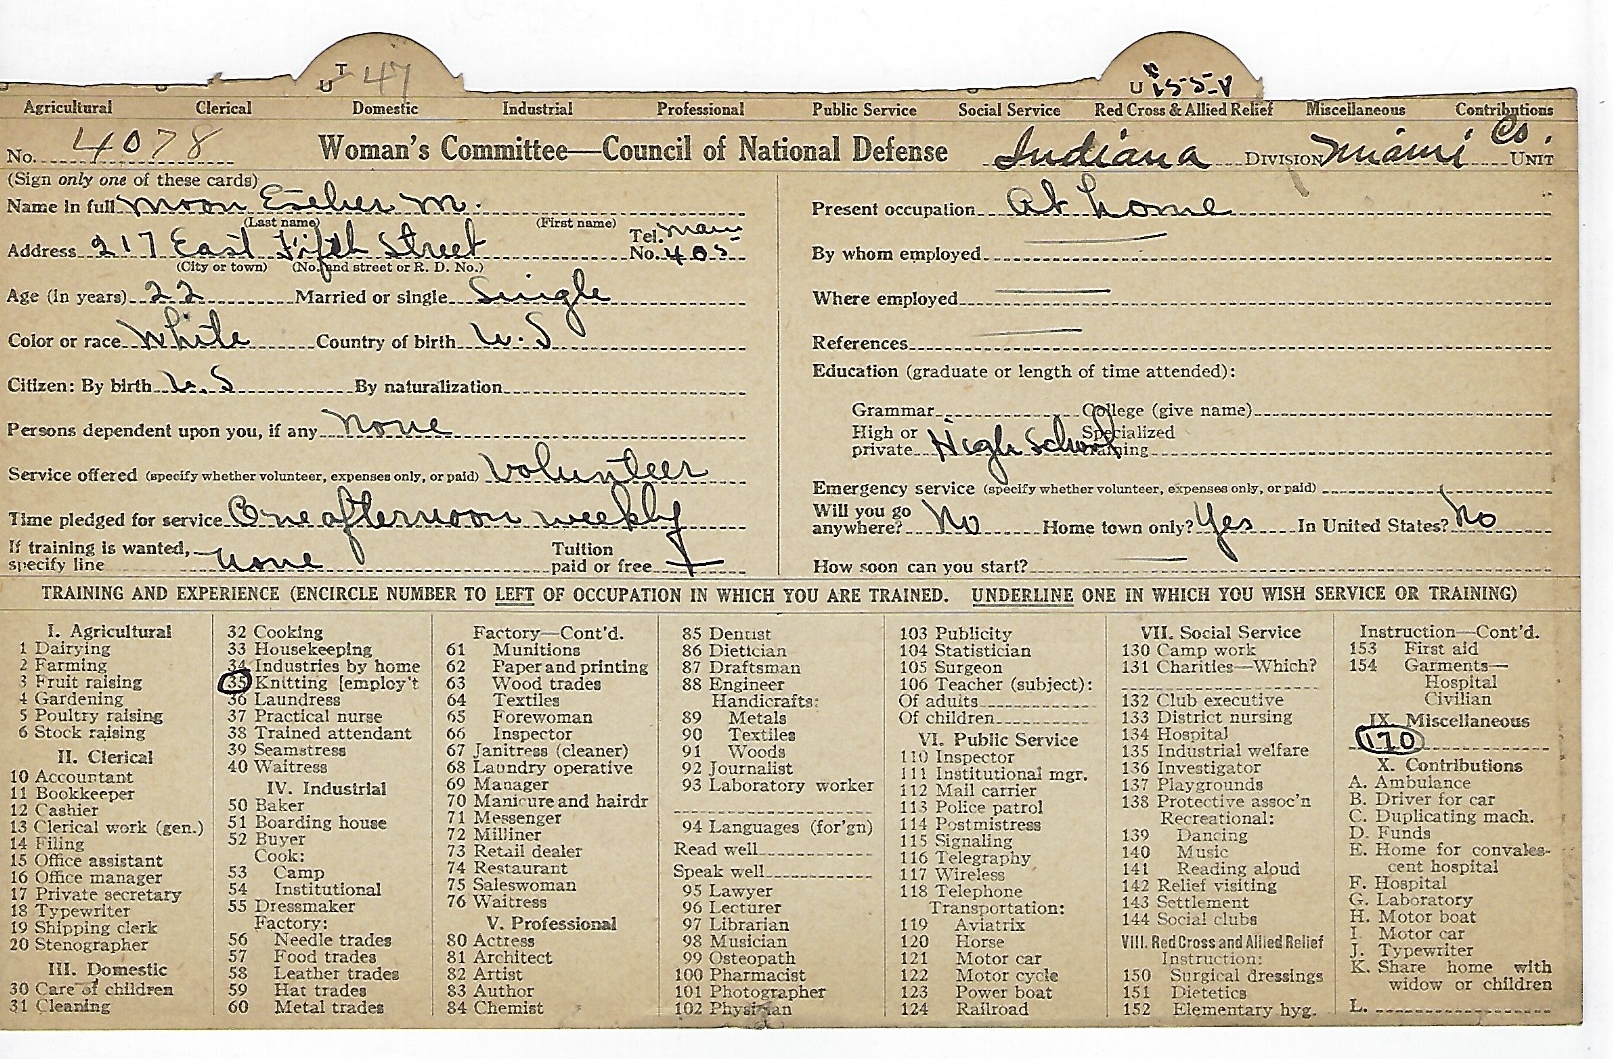 U T 47
U
Agricultural Clerical Domestic Industrial Professional Public Service Social Service Red Cross & Allied Relief Miscellaneous Contributions
No. 4078 Woman's Committee—Council of National Defense Indiana DIVISION Miami Co. UNIT
(Sign only one of these cards)
Name in full Moon Esther M.
(Last name) (First name)
Address 217 East Fifth Street Tel. Main
No. 405
(City or town) (No. and street or R. D. No.)
Age (in years) 22 Married or single Single
Color or race White Country of birth U.S
Citizen: By birth U.S By naturalization
Persons dependent upon you, if any none
Service offered (specify whether volunteer, expenses only, or paid) Volunteer
Time pledged for service One afternoon weekly
If training is wanted, Tuition
specify line none paid or free
Present occupation At home
By whom employed
Where employed
References
Education (graduate or length of time attended):
Grammar College (give name)
High or Specialized
private High School training
Emergency service (specify whether volunteer, expenses only, or paid)
Will you go
anywhere? No Home town only? Yes In United States? No
How soon can you start?
TRAINING AND EXPERIENCE (ENCIRCLE NUMBER TO LEFT OF OCCUPATION IN WHICH YOU ARE TRAINED. UNDERLINE ONE IN WHICH YOU WISH SERVICE OR TRAINING)
I. Agricultural
1 Dairying
2 Farming
3 Fruit raising
4 Gardening
5 Poultry raising
6 Stock raising
II. Clerical
10 Accountant
11 Bookkeeper
12 Cashier
13 Clerical work (gen.)
14 Filing
15 Office assistant
16 Office manager
17 Private secretary
18 Typewriter
19 Shipping clerk
20 Stenographer
III. Domestic
30 Care of children
31 Cleaning
32 Cooking
33 Housekeeping
34 Industries by home
35 Knitting [employ't
36 Laundress
37 Practical nurse
38 Trained attendant
39 Seamstress
40 Waitress
IV. Industrial
50 Baker
51 Boarding house
52 Buyer
Cook:
53 Camp
54 Institutional
55 Dressmaker
Factory:
56 Needle trades
57 Food trades
58 Leather trades
59 Hat trades
60 Metal trades
Factory—Cont'd.
61 Munitions
62 Paper and printing
63 Wood trades
64 Textiles
65 Forewoman
66 Inspector
67 Janitress (cleaner)
68 Laundry operative
69 Manager
70 Manicure and hairdr
71 Messenger
72 Milliner
73 Retail dealer
74 Restaurant
75 Saleswoman
76 Waitress
V. Professional
80 Actress
81 Architect
82 Artist
83 Author
84 Chemist
85 Dentist
86 Dietician
87 Draftsman
88 Engineer
Handicrafts:
89 Metals
90 Textiles
91 Woods
92 Journalist
93 Laboratory worker
94 Languages (for'gn)
Read well
Speak well
95 Lawyer
96 Lecturer
97 Librarian
98 Musician
99 Osteopath
100 Pharmacist
101 Photographer
102 Physician
103 Publicity
104 Statistician
105 Surgeon
106 Teacher (subject):
Of adults
Of children
VI. Public Service
110 Inspector
111 Institutional mgr.
112 Mail carrier
113 Police patrol
114 Postmistress
115 Signaling
116 Telegraphy
117 Wireless
118 Telephone
Transportation:
119 Aviatrix
120 Horse
121 Motor car
122 Motor cycle
123 Power boat
124 Railroad
VII. Social Service
130 Camp work
131 Charities—Which?
132 Club executive
133 District nursing
134 Hospital
135 Industrial welfare
136 Investigator
137 Playgrounds
138 Protective assoc'n
Recreational:
139 Dancing
140 Music
141 Reading aloud
142 Relief visiting
143 Settlement
144 Social clubs
VIII. Red Cross and Allied Relief
Instruction:
150 Surgical dressings
151 Dietetics
152 Elementary hyg.
Instruction—Cont'd.
153 First aid
154 Garments—
Hospital
Civilian
IX. Miscellaneous
170
X. Contributions
A. Ambulance
B. Driver for car
C. Duplicating mach.
D. Funds
E. Home for convales-
cent hospital
F. Hospital
G. Laboratory
H. Motor boat
I. Motor car
J. Typewriter
K. Share home with
widow or children
L.